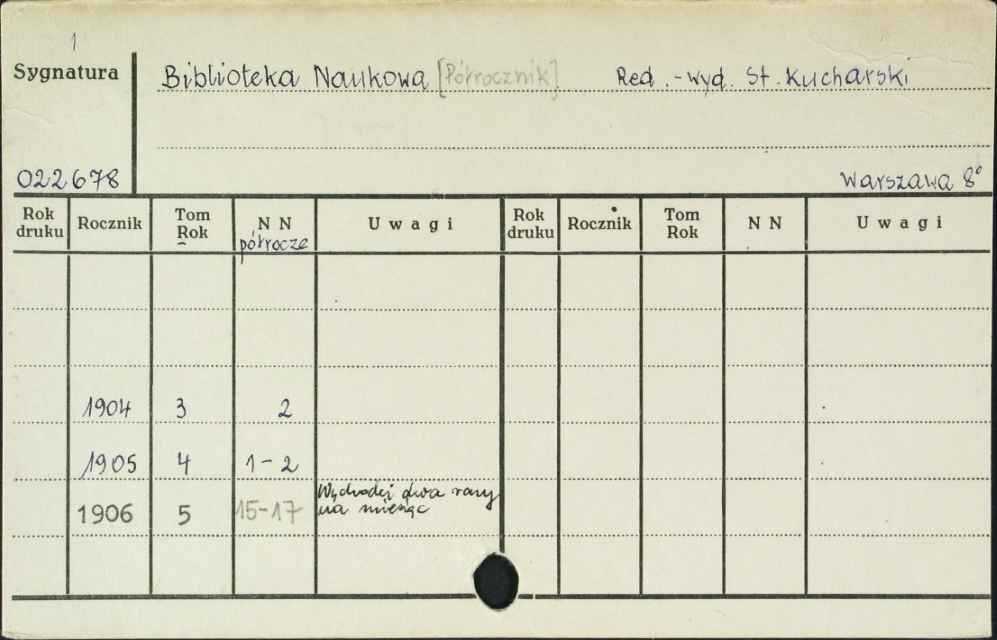 1
Sygnatura
Biblioteka Naukowa [Półrocznik] Red.-wyd. St. Kucharski
022678
Warszawa 8°
Rok druku Rocznik Tom Rok N N półrocze Uwagi Rok druku Rocznik Tom Rok N N Uwagi
1904 3 2
1905 4 1-2
1906 5 15-17 Wychodzi dwa razy
na miesiąc